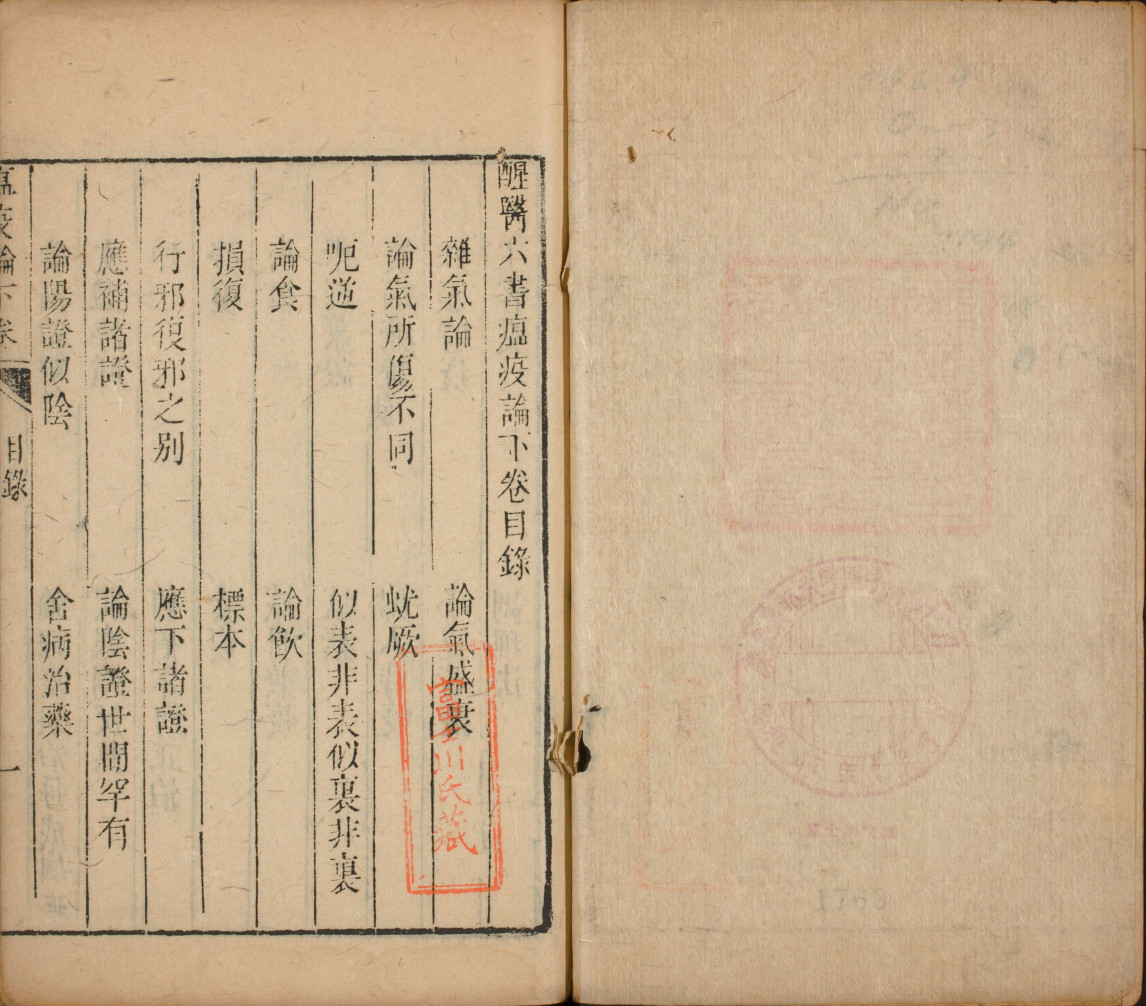 醒醫六書瘟疫論下卷目錄
雜氣論 論氣盛衰
論氣所傷不同 蚘厥
呃逆 似表非表似裏非裏
論食 論飲
損復 標本
行邪復邪之別 應下諸證
應補諸證 論陰證世間罕有
論陽證似陰 舍病治藥
瘟疫論下卷 目錄 一
川氏藏
1768